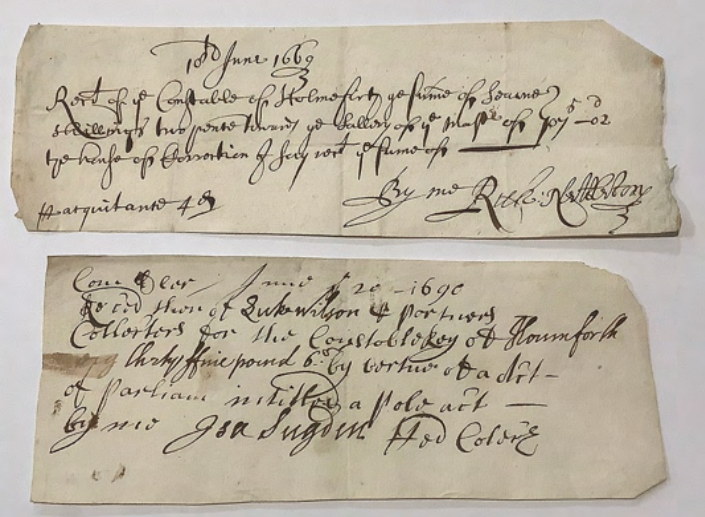 10th June 1669
Rect of ye Constable of Holmefirth ye sume of seaven
shillings two pence towards ye Sallery of ye Mastr of
ye house of Correction I say rect ye sume of 07s - 02d
By me
Aacquitance 4d
June ye 20 - 1690
Receed then of Luke Wilson & partners
Collecters for the Constablekey of Houmforth
thirty ffive pound 6s by vertue of a Act -
of Parliam intitled a Pole act -
by me Joa Sugden Hed Colectr